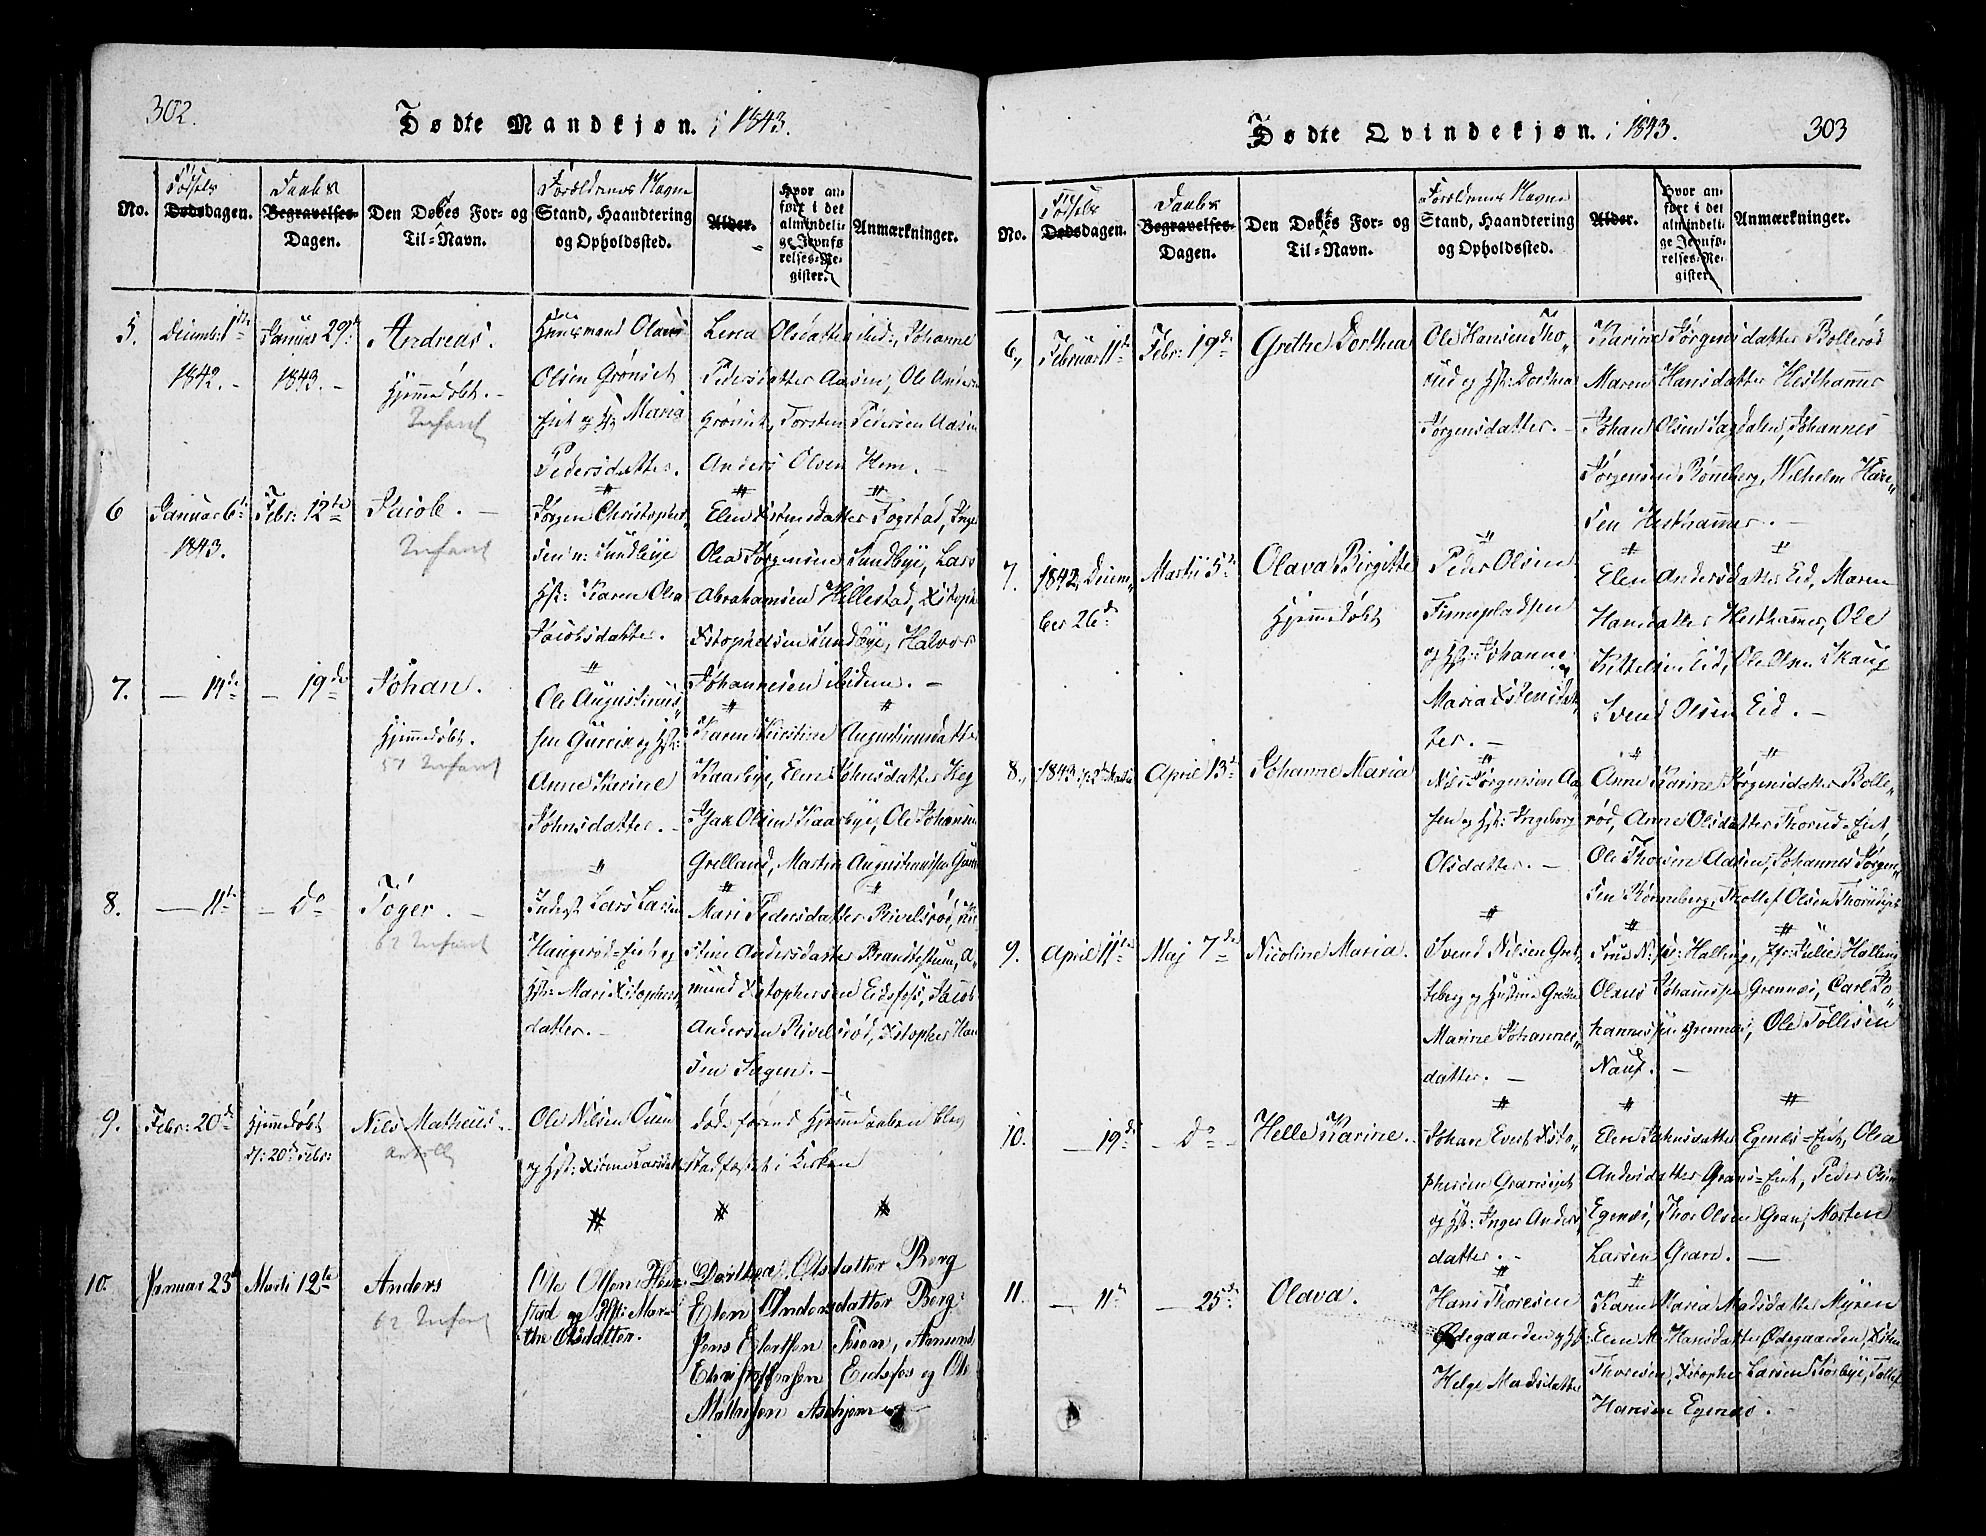 302.
Dødte Mandkjøn. i 1843.
No.
Fødsels
Dødsdagen.
Daabs
Begravelses-
Dagen.
Den Døbtes For- og
Til-Navn.
Forældrenes Navne
Stand, Haandtering
og Opholdssted.
Alder.
Hvor an-
ført i det
almindeli-
ge Jevnfø-
relses-Re-
gister.
Anmærkninger.
5.
Decembr: 1ste
1842. -
Januar 29de
1843. -
Andreas.
Hjemmedøbt. -
Infant
Huusmand Olaus
Olsen Grønset
Eiet og H: Maria
Pedersdatter.
Lerea Olsdatter ibid:, Johanne
Pedersdatter Aasen, Ole Anders
Grønset, Torsten Pedersen Aasen
Anders Olsen Hem. -
6
Januar 6te
1843.
Febr: 12te
Jacob. -
Infant
Jørgen Christopher-
sen n: Sundbye
Hst: Karen Olea
Jacobsdatter.
Elen Xstensdatter Fogstad, Inge
Olea Jørgensen Sundbye, Lars
Abrahamsen Hillestad, Xstopher
Xstophersen Sundbye, Halvor
Johannesen ibidem. -
7.
- 14de
- 19de
Johan.
Hjemmedøbt.
57 Infant
Ole Augustinus-
sen Gurrix og Hst:
Anne Karine
Johnsdatter. -
Karen Kirstine Augustinusdatter
Kaarbye, Elen Johnsdatter Keg
Isak Olsen Kaarbye, Ole Johannes
Grelland, Martin Augustinussen
8.
- 11te
- Do
Tøger. -
62 Infant
Inderst Lars Larsen
Haugerød-Eiet og
Hst: Mari Xstophers-
datter. -
Mari Pedersdatter Rivelsrød,
Stine Andersdatter Brandtestuen, A-
mund Xstophersen Eidsfoss, Jacob
Andersen Rivelsrød, Xstopher Han
sen Hagen. -
9.
Febr: 20de
Hjemmedøbt
d: 20de Febr:
Nils Matheus. -
Ole Nilsen
og Hst:
døde førend Hjemmedaaben blev
stadfæstet i Kirken
10.
Januar 23de
Marti 12te
Anders
62 Infant
Ole Olsen Hew-
stad og Hst: Mar-
the Olsdatter.
Dorthea Olsdatter Berg
Elen Andersdatter Berg
Jens Elertsen Tveen, Amund
Christophersen Eidsfos og Ole
Mathisen Askjem
303
Dødte Qvindekjøn. i 1843.
No.
Fødsels
Dødsdagen.
Daabs
Begravelses-
Dagen.
Den Døbtes For- og
Til-Navn.
Forældrenes Navne
Stand, Haandtering
og Opholdssted.
Alder.
Hvor an-
ført i det
almindeli-
ge Jevnfø-
relses-Re-
gister.
Anmærkninger.
6.
Februar 11te
Febr: 19de
Grethe Dorthea
Ole Hansen Tho-
rud og Hst: Dorthea
Jørgensdatter. -
Karine Jørgensdatter Bollerød
Maren Hansdatter Hesthammer
Johan Olsen Sagdalen, Johannes
Jørgensen Rønneberg, Wilhelm Han-
sen Hesthammer. -
7.
1842, Decem-
ber 26de
Martii 5te
Olava Birgitte
Hjemmedøbt
Peder Olsen
Finnepladsen
og Hst: Johanne
Maria Xstensdat-
ter. -
Elen Andersdatter Eid, Maren
Hansdatter Hesthammer, Ole
Kittelsen Eid, Ole Olsen Skaug
Svend Olsen Eid. -
8.
1843
April 13de
Johanne Maria
Nils Jørgensen Aa-
sen og Hst: Ingeborg
Olsdatter. -
Anne Karine Jørgensdatter Bolle-
rød, Anne Olsdatter Thorud-Eiet,
Ole Thorsen Aasen, Johannes Jørgen-
sen Rønneberg, Thollef Olsen Thorudeiet
9.
April 11te
Maj 7de
Nicoline Maria.
Svend Nilsen Gret-
teberg og Hustrue Grethe
Marine Johannes-
datter. -
Frue N: Halling, Jfr: Julie Halling
Olaus Johannessen Grennes, Carl Jo-
hannessen Grennes, Ole Tollesen
Nauf. -
10.
- 19de
- Do -
Helle Karine.
Johan Evert Xsto-
phersen Graneiet
og Hst: Inger Anders-
datter. -
Elen Johnsdatter Egenes-Eiet, Olea
Andersdatter Grans-Eiet, Peder Olsen
Egenes, Thor Olsen Gran, Morten
Larsen Gran. -
11.
- 11te
- 25de
Olava.
Hans Thoresen
Ødegaarden og Hst:
Helge Madsdatter
Karen Maria Madsdatter Myren
Elen M: Hansdatter Ødegaarden, Xsten
Thoresen, Xstopher Larsen Korsbye, Tollef
Hansen Egenes. -